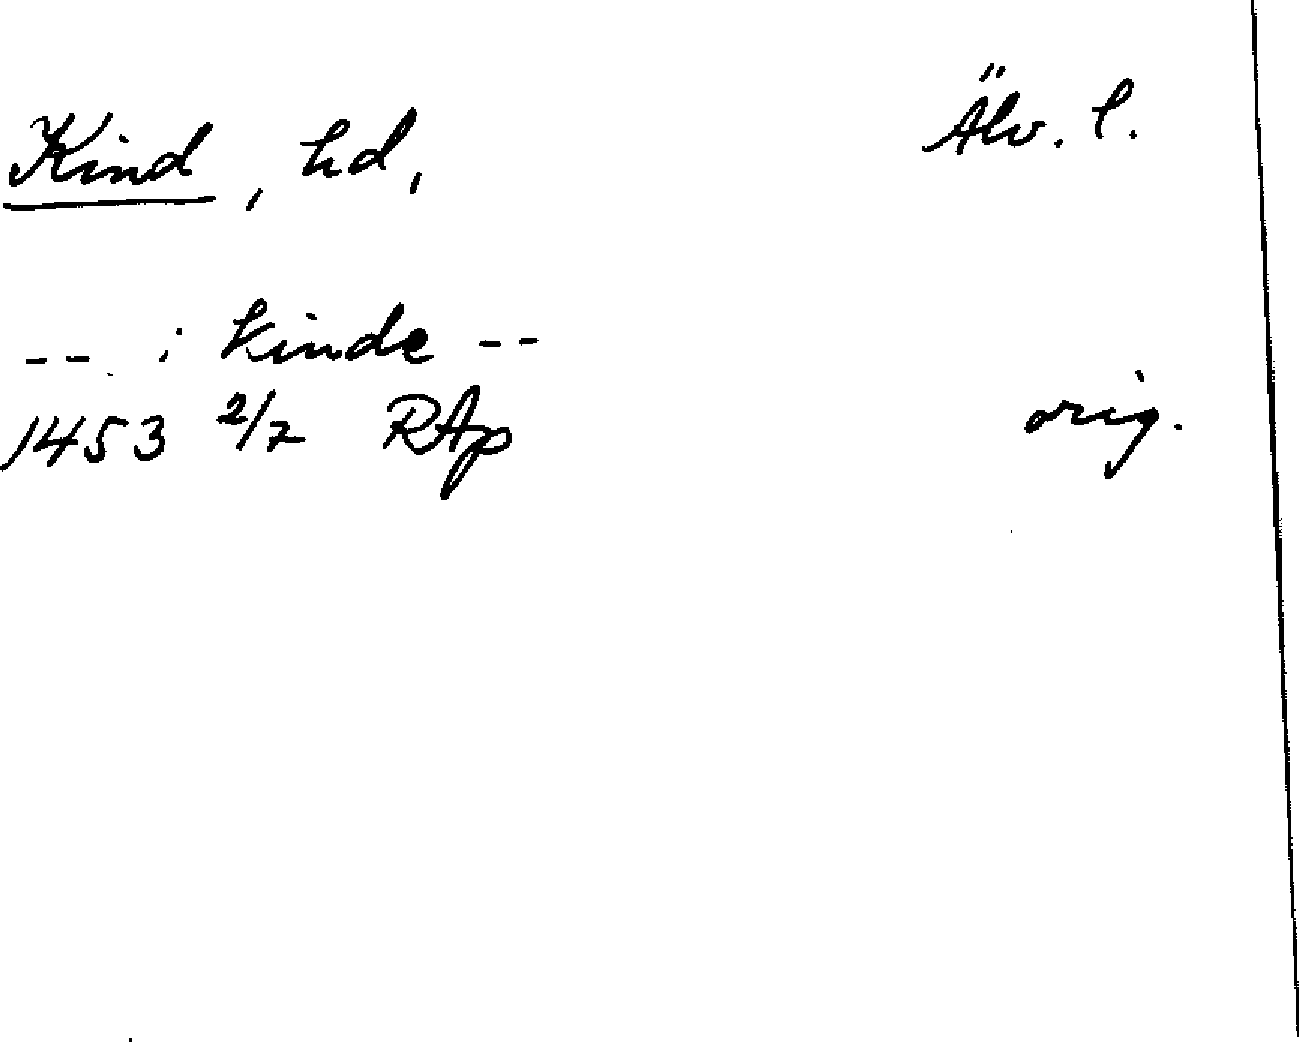 Kind, hd, Älv. l.
-- i kinde --
1453 2/7 RAp orig.